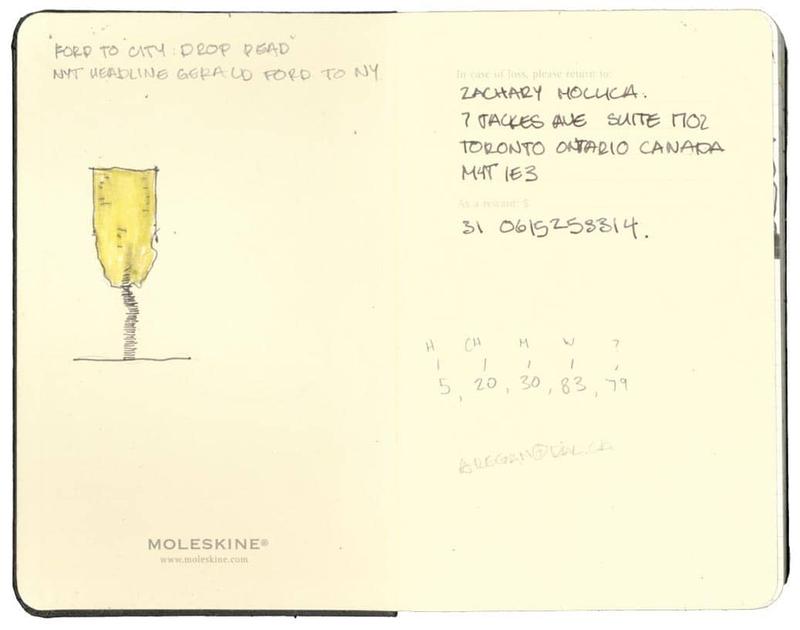 "FORD TO CITY: DROP DEAD"
NYT HEADLINE GERALD FORD TO NY
MOLESKINE®
www.moleskine.com
In case of loss, please return to:
ZACHARY MOLLICA.
7 JACKES AVE SUITE 1702
TORONTO ONTARIO CANADA
M4T 1E3
As a reward: $
31 0615258314.
H CH M W ?
5, 20, 30, 83, 79
AREGAN@DAL.CA